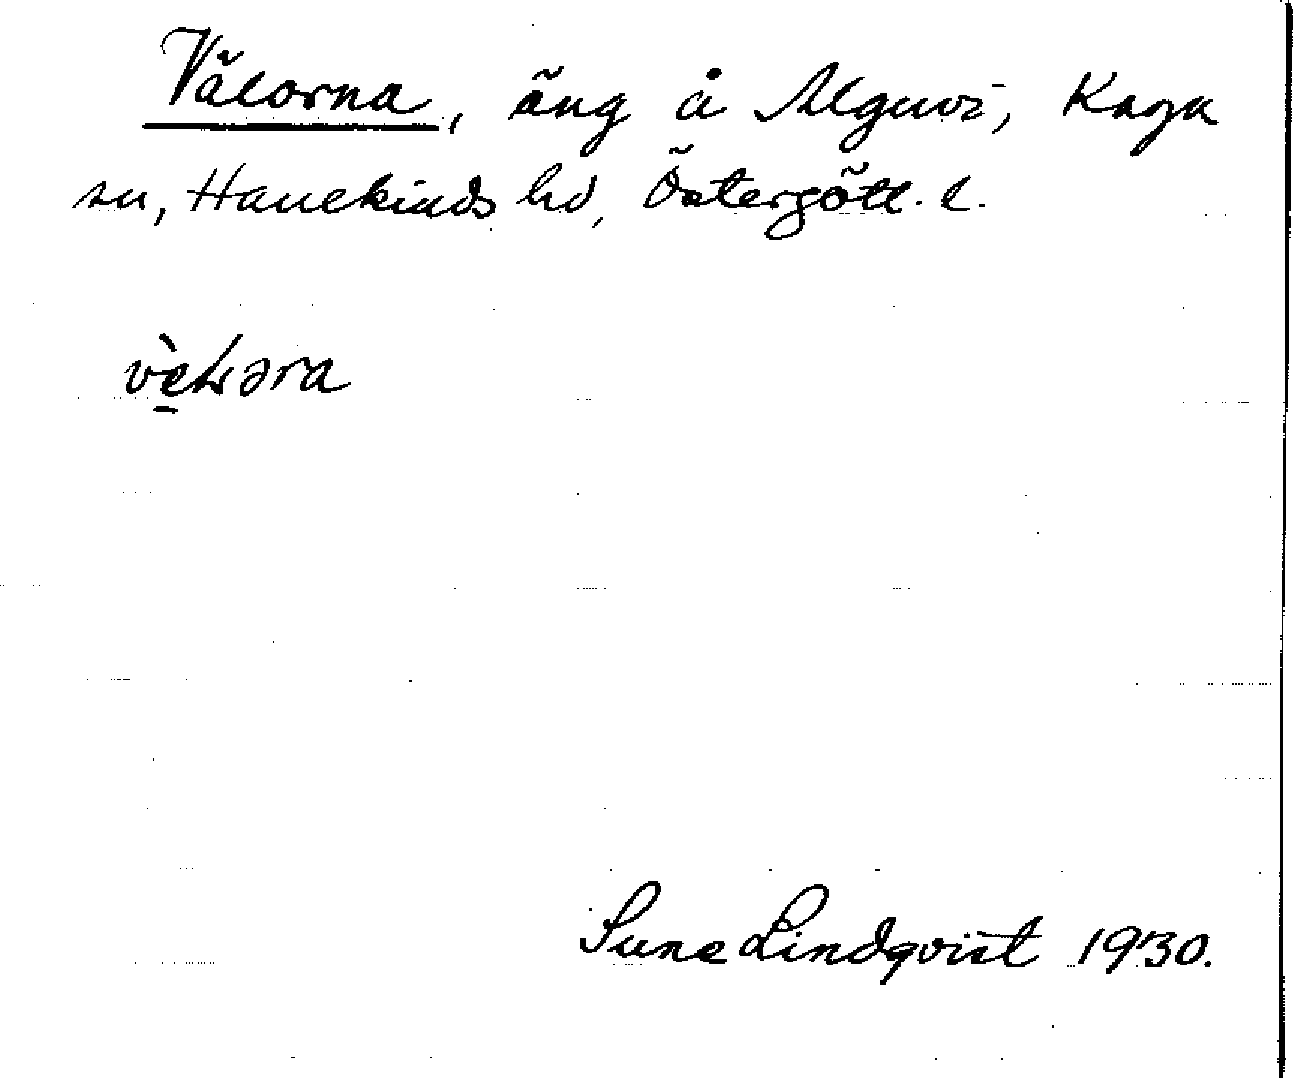 Välorna, äng å Alguvi, Kaga
sn, Hanekinds hd, Östergötl. l.
Sune Lindqvist 1930.